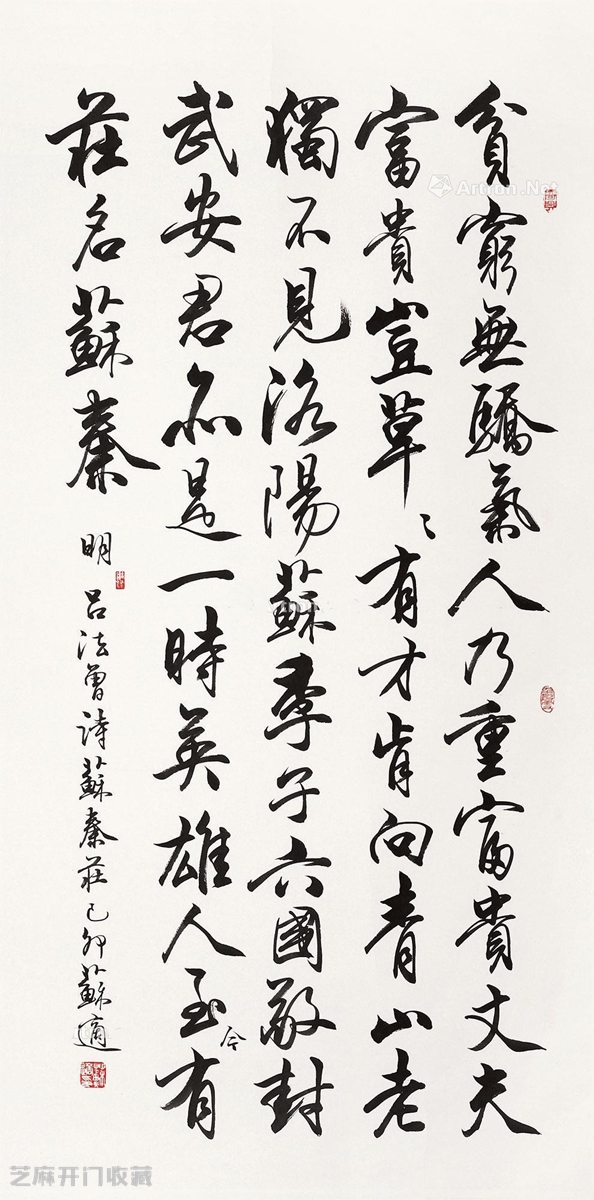 貧窮無驕氣人乃重富貴丈夫
富貴豈草〻有才肯向青山老
獨不見洛陽蘇季子六國敬封
武安君亦是一時英雄人至今有
莊名蘇秦
明吕法曾詩蘇秦莊己卯蘇適
Artron.Net
芝麻开门收藏